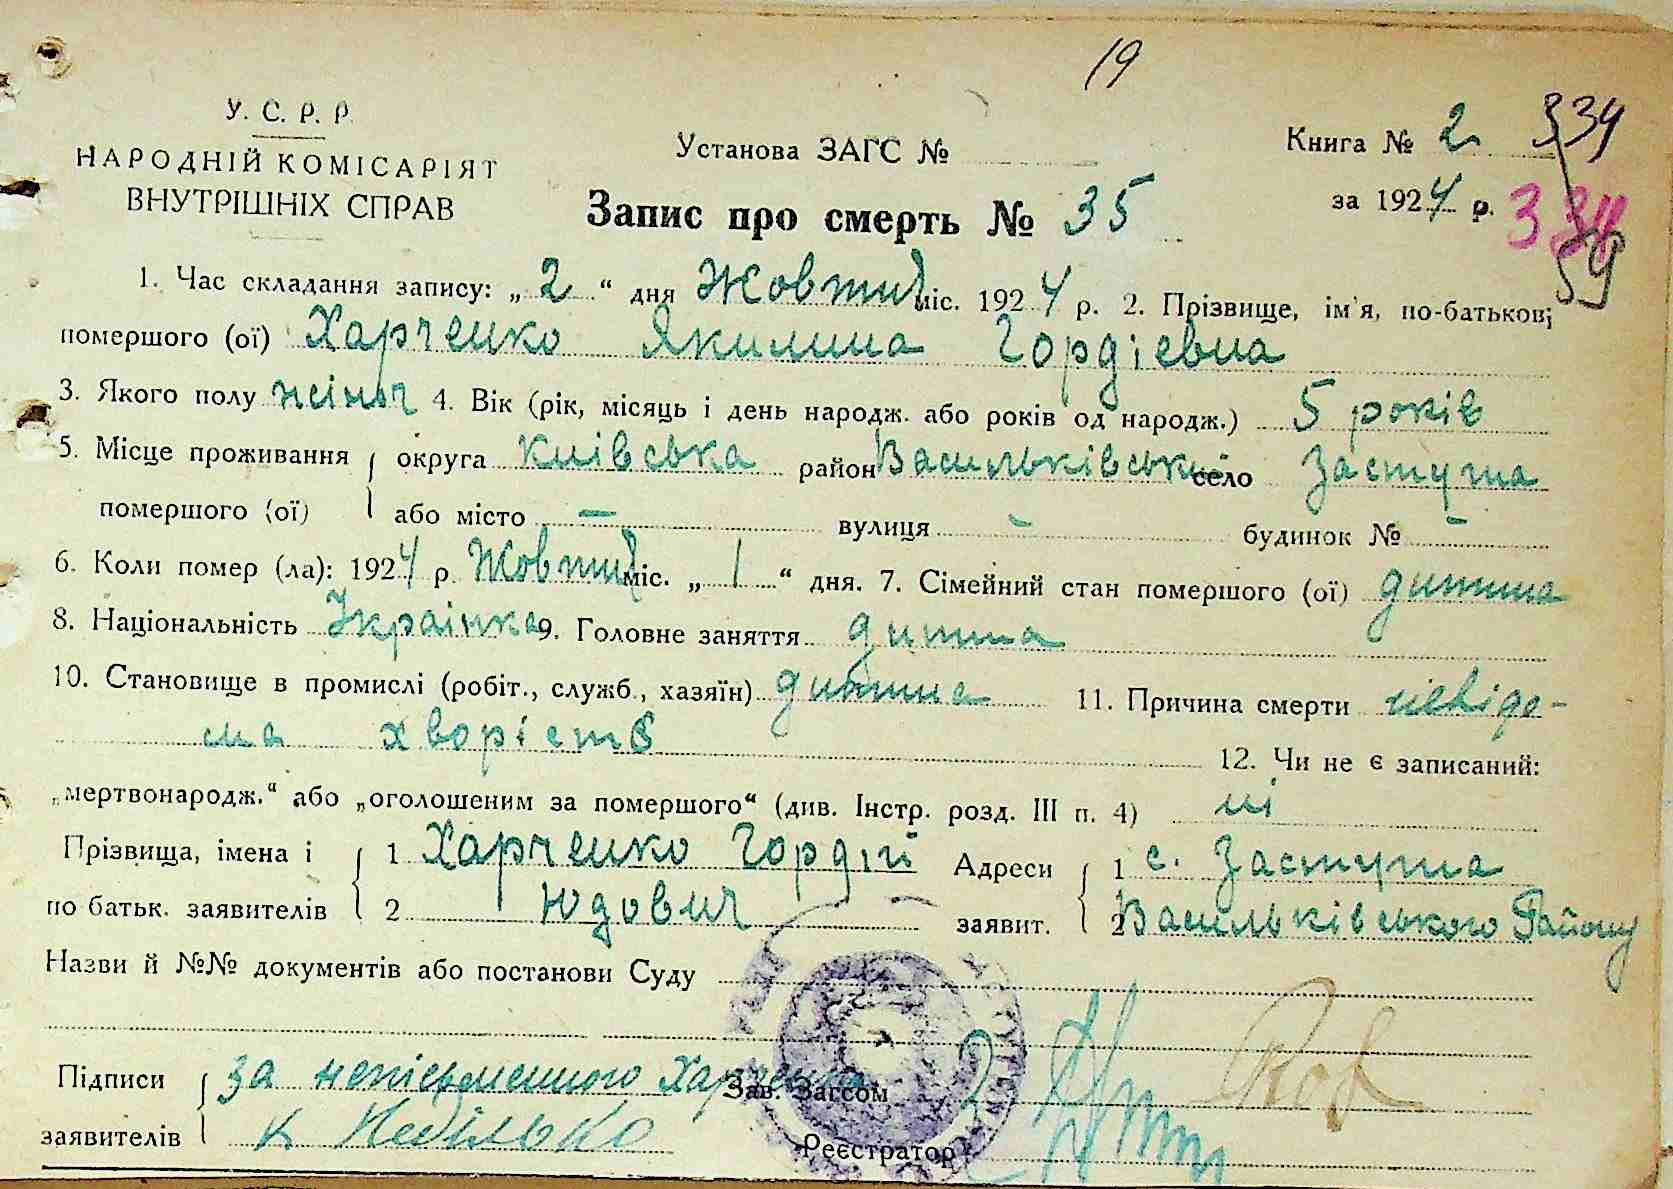 19
У. С. Р. Р.
НАРОДНІЙ КОМІСАРІЯТ
ВНУТРІШНІХ СПРАВ
Установа ЗАГС №
Книга № 2
334
за 1924 р.
334
59
Запис про смерть № 35
1. Час складання запису: „ 2 “ дня Жовтня міс. 1924 р. 2. Прізвище, ім'я, по-батькові
помершого (ої) Харченко Якилина Гордіевна
3. Якого полу жіноч 4. Вік (рік, місяць і день народж. або років од народж.) 5 років
5. Місце проживання округа Київська район Васильківський село Застугна
помершого (ої) або місто — вулиця - будинок № -
6. Коли помер (ла): 1924 р. Жовтня міс. „ 1 “ дня. 7. Сімейний стан помершого (ої) дитина
8. Національність Українка 9. Головне заняття дитина
10. Становище в промислі (робіт., служб., хазяїн) дитина 11. Причина смерти невідо-
ма хворість
12. Чи не є записаний:
„мертвонародж.“ або „оголошеним за помершого“ (див. Інстр. розд. III п. 4) ні
Прізвища, імена і 1 Харченко Гордій Адреси 1 с. Застугна
по батьк. заявителів 2 Юдович заявит. 2 Васильківського Району
Назви й №№ документів або постанови Суду
Підписи за неписьменного Харченка Зав. Загсом
заявителів К Неділько Реєстратор